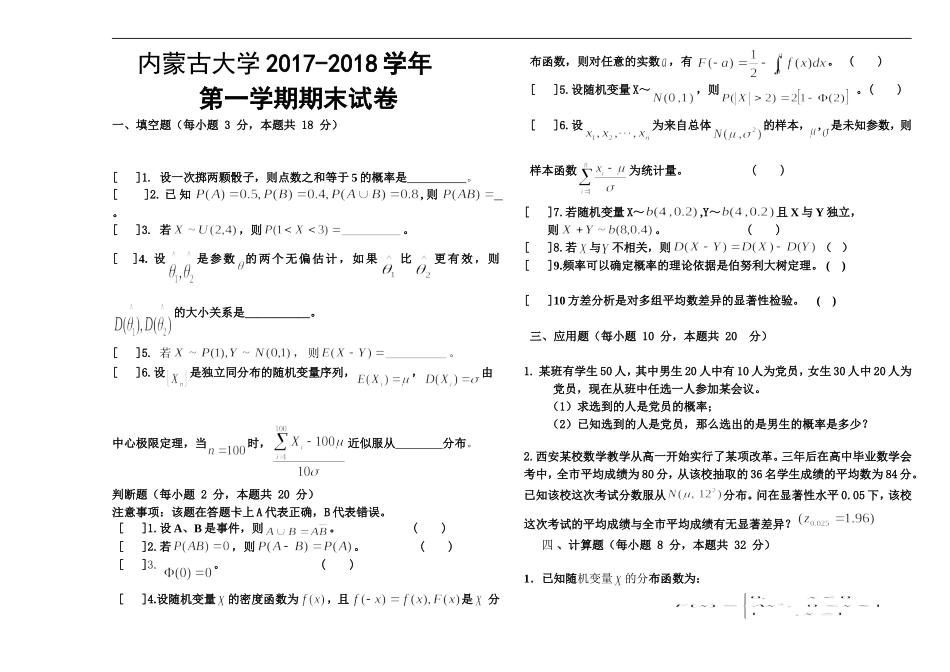 内蒙古大学 2017-2018 学年
第一学期期末试卷
一、填空题（每小题 3 分，本题共 18 分）
[ ]1. 设一次掷两颗骰子，则点数之和等于 5 的概率是__________。
[ ]2. 已知 P(A)=0.5, P(B)=0.4, P(A∪B)=0.8,则 P(AB)__
。
[ ]3. 若 X ~ U(2,4)，则 P(1<X<3)=__________。
[ ]4. 设 θ̂₁, θ̂₂ 是参数 θ 的两个无偏估计，如果 θ̂₁ 比 θ̂₂ 更有效，则
D(θ̂₁), D(θ̂₂) 的大小关系是___________。
[ ]5. 若 X ~ P(1), Y ~ N(0,1)，则 E(X-Y)=__________。
[ ]6.设 {Xₙ} 是独立同分布的随机变量序列，E(Xᵢ)=μ，D(Xᵢ)=σ 由
中心极限定理，当 n=100 时，∑_{i=1}^{100} Xᵢ-100μ / 10σ 近似服从________分布。
判断题（每小题 2 分，本题共 20 分）
注意事项：该题在答题卡上 A 代表正确，B 代表错误。
[ ]1.设 A、B 是事件，则 A∪B=AB̅。 ( )
[ ]2.若 P(AB)=0，则 P(A-B)=P(A)。 ( )
[ ]3. Φ(0)=0。 ( )
[ ]4.设随机变量 X 的密度函数为 f(x)，且 f(-x)=f(x), F(x) 是 X 分
布函数，则对任意的实数 a，有 F(-a)=1/2-∫₀ f(x)dx。 ( )
[ ]5.设随机变量 X～N(0,1)，则 P(|X|>2)=2[1-Φ(2)]。( )
[ ]6.设 x₁,x₂,⋯,xₙ 为来自总体 N(μ,σ²) 的样本，μ,σ 是未知参数，则
样本函数 ∑_{i=1}^{n} (xᵢ-μ)/σ 为统计量。 ( )
[ ]7.若随机变量 X～b(4,0.2),Y～b(4,0.2) 且 X 与 Y 独立，
则 X+Y~b(8,0.4)。 ( )
[ ]8.若 X 与 Y 不相关，则 D(X-Y)=D(X)-D(Y) ( )
[ ]9.频率可以确定概率的理论依据是伯努利大树定理。 ( )
[ ]10 方差分析是对多组平均数差异的显著性检验。 ( )
三、应用题（每小题 10 分，本题共 20 分）
1. 某班有学生 50 人，其中男生 20 人中有 10 人为党员，女生 30 人中 20 人为
党员，现在从班中任选一人参加某会议。
（1）求选到的人是党员的概率；
（2）已知选到的人是党员，那么选出的是男生的概率是多少？
2. 西安某校数学教学从高一开始实行了某项改革。三年后在高中毕业数学会
考中，全市平均成绩为 80 分，从该校抽取的 36 名学生成绩的平均数为 84 分。
已知该校这次考试分数服从 N(μ, 12²) 分布。问在显著性水平 0.05 下，该校
这次考试的平均成绩与全市平均成绩有无显著差异？(z₀.₀₂₅=1.96)
四、计算题（每小题 8 分，本题共 32 分）
1．已知随机变量 X 的分布函数为: